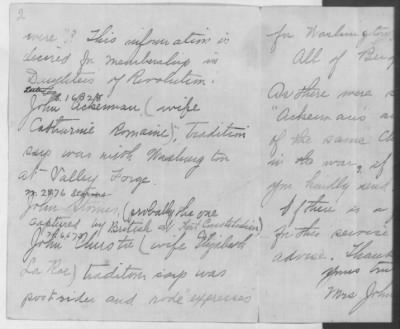 2
were?? This information is
desired for membership in
Daughters of Revolution.
John Ackerman (wife
Catharine Romaine), tradition
says was with Washington
at Valley Forge.
John (probably the one
captured by British at Fort Constitution)
John (wife Elizabeth
La Roe) tradition says was
post rider and rode expresses
for Washington
All of
As there were a
"Ackermans" a
of the same
in the war, if
you kindly send
If there is a
for this service
advise. Thank
yours tru
Mrs John